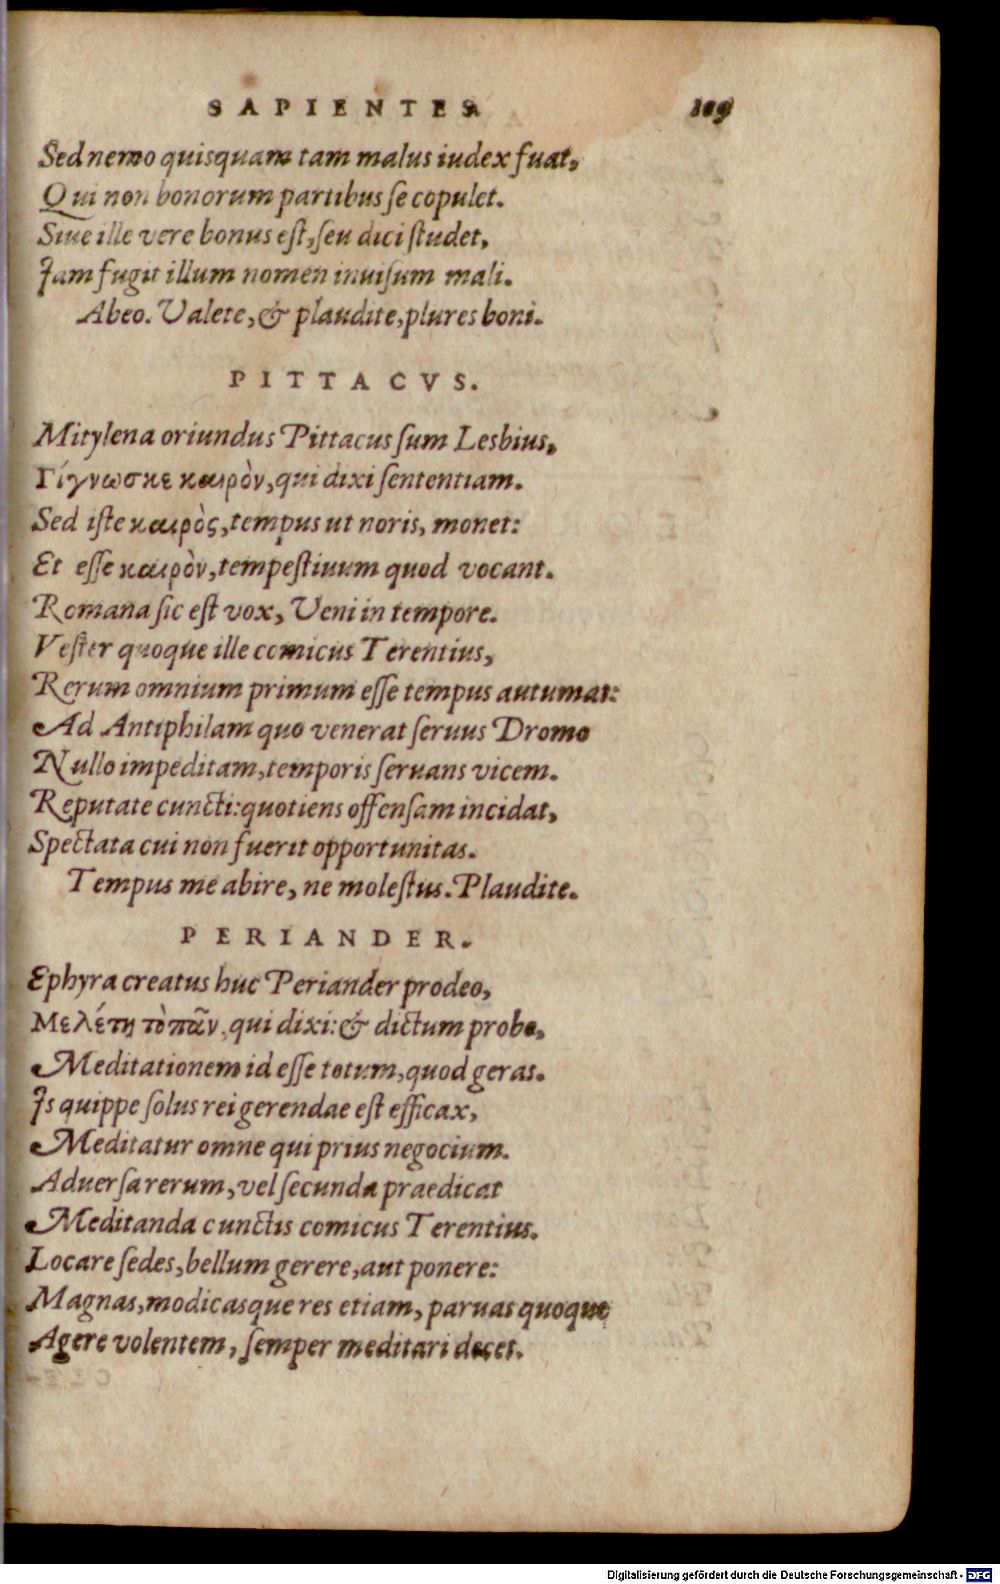 SAPIENTES 109
Sed nemo quisquam tam malus iudex fuat,
Qui non bonorum partibus se copulet.
Siue ille vere bonus est, seu dici studet,
Iam fugit illum nomen inuisum mali.
Abeo. Valete, & plaudite, plures boni.
PITTACVS.
Mitylena oriundus Pittacus sum Lesbius,
Γίγνωσκε καιρὸν, qui dixi sententiam.
Sed iste καιρὸς, tempus ut noris, monet:
Et esse καιρὸν, tempestiuum quod vocant.
Romana sic est vox, Veni in tempore.
Vester quoque ille comicus Terentius,
Rerum omnium primum esse tempus autumat:
Ad Antiphilam quo venerat seruus Dromo
Nullo impeditam, temporis seruans vicem.
Reputate cuncti: quotiens offensam incidat,
Spectata cui non fuerit opportunitas.
Tempus me abire, ne molestus. Plaudite.
PERIANDER.
Ephyra creatus huc Periander prodeo,
Μελέτη τὸ πᾶν, qui dixi: & dictum probo,
Meditationem id esse totum, quod geras.
Is quippe solus rei gerendae est efficax,
Meditatur omne qui prius negocium.
Aduersa rerum, vel secunda praedicat
Meditanda cunctis comicus Terentius.
Locare sedes, bellum gerere, aut ponere:
Magnas, modicasque res etiam, paruas quoque
Agere volentem, semper meditari decet.
Digitalisierung gefördert durch die Deutsche Forschungsgemeinschaft - DFG